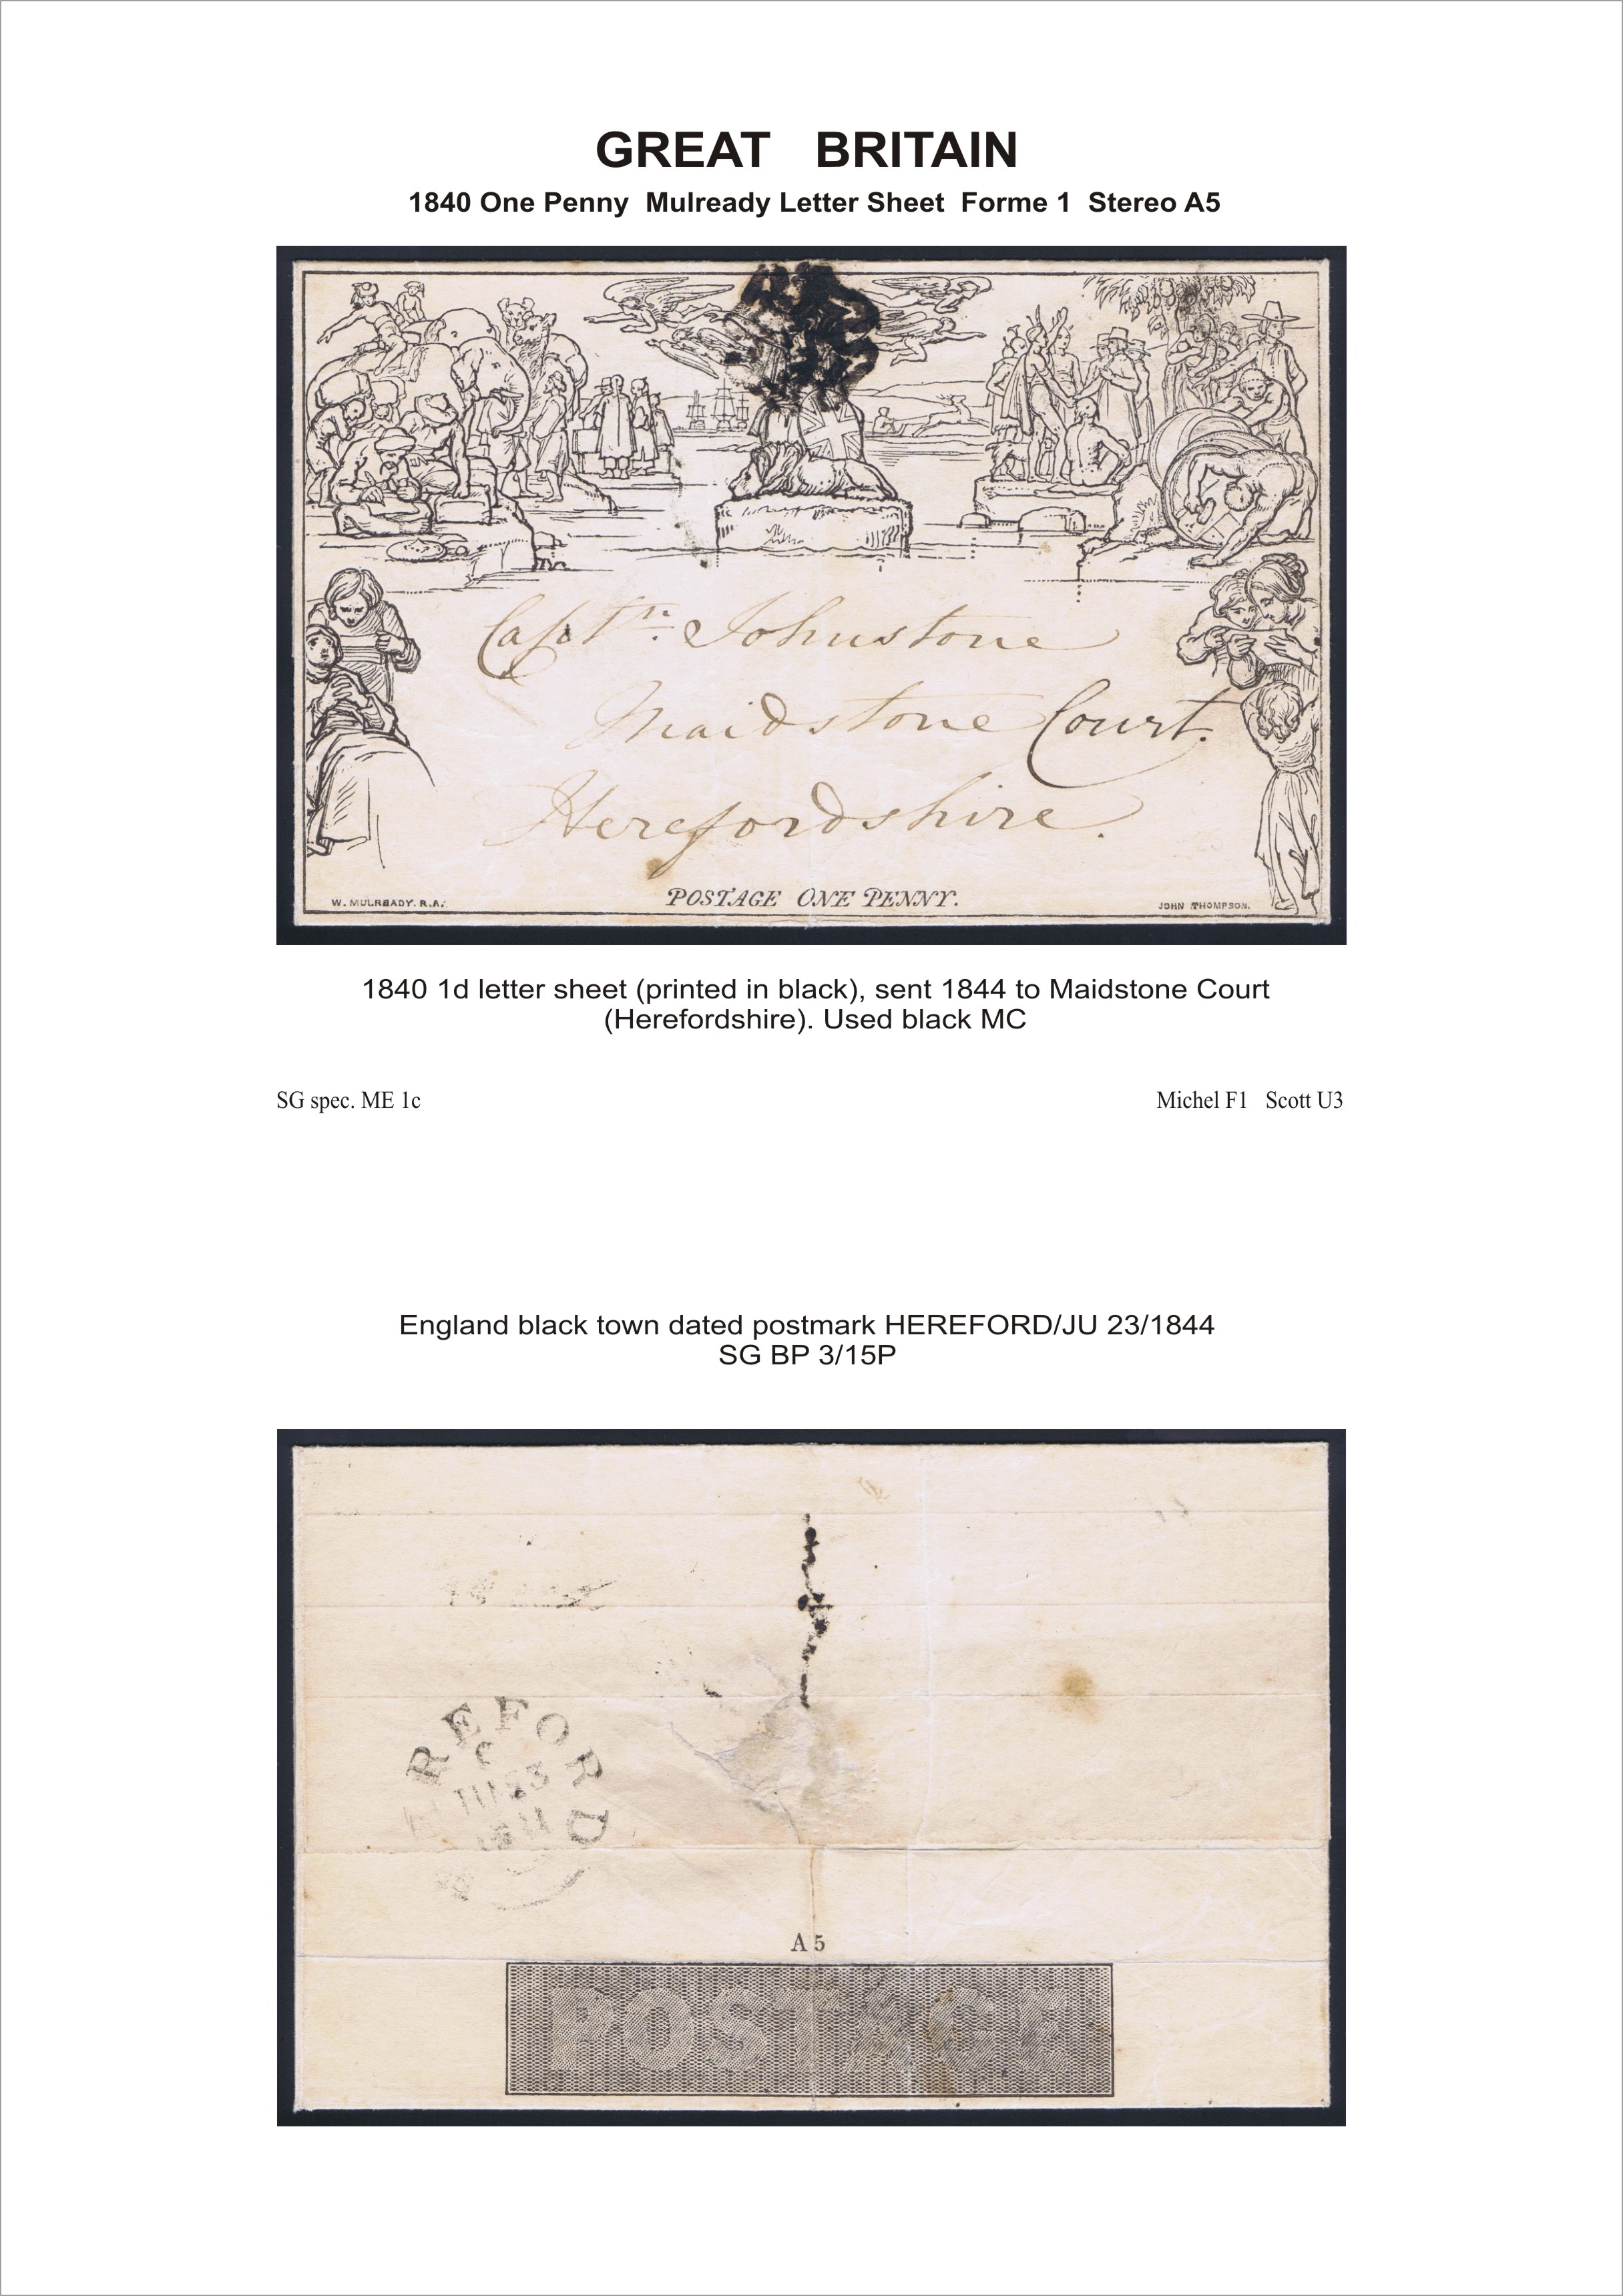 GREAT BRITAIN
1840 One Penny Mulready Letter Sheet Forme 1 Stereo A5
Captn. Johnstone
Maidstone Court.
Herefordshire.
W. MULREADY. R.A.
POSTAGE ONE PENNY.
JOHN THOMPSON.
1840 1d letter sheet (printed in black), sent 1844 to Maidstone Court
(Herefordshire). Used black MC
SG spec. ME 1c
Michel F1 Scott U3
England black town dated postmark HEREFORD/JU 23/1844
SG BP 3/15P
REFORD
C
JU 23
A 5
POSTAGE